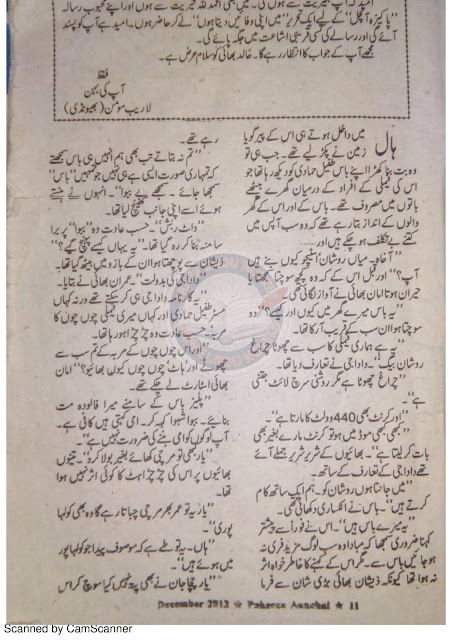 امید ہے آپ سب خیریت سے ہوں گی۔ میں بھی الحمدللہ خیریت سے ہوں اور اپنے محبوب رسالہ
"پاکیزہ آنچل" کے لیے ایک تحریر "میں اپنی وفائیں دیتا ہوں" لے کر حاضر ہوں۔ امید ہے آپ کو پسند
آئے گی اور رسالے کی کسی قریبی اشاعت میں جگہ پائے گی۔
مجھے آپ کے جواب کا انتظار رہے گا۔ خالد بھائی کو سلام عرض ہے۔
فقط
آپ کی بہن
لاریب مومن (بھیونڈی)
ہال میں داخل ہوتے ہی اس کے پیر گویا
زمین نے پکڑ لیے تھے۔ جب ہی تو
وہ بت بنا کھڑا اپنے باس طفیل حمادی کو دیکھ رہا تھا جو
اس کی فیملی کے افراد کے درمیان گھرے بیٹھے
باتوں میں مصروف تھے۔ باس کے اور اس کے گھر
والوں کے انداز بتا رہے تھے کہ وہ سب آپس میں
کتنے بے تکلف ہو چکے ہیں اور......
"آخاہ۔ میاں روشان اسٹیچو کیوں بنے ہیں
آپ؟" اور قبل اس کے کہ وہ کچھ سوچتا سمجھتا یا
حیران ہوتا امان بھائی نے آواز لگائی تھی۔
"یہ باس میرے گھر میں کیوں اور کیسے؟" وہ
سوچتا ہوا ان سب کے قریب آ رکا تھا۔
"یہ ہے ہماری فیملی کا سب سے چھوٹا چراغ
روشان بیگ"۔ دادا جی نے تعارف دیا تھا۔
"چراغ چھوٹا ہے مگر روشنی سرچ لائٹ جتنی
ہے"۔
"اور کرنٹ بھی 440 وولٹ کا مارتا ہے"۔
"کبھی کبھی موڈ میں ہو تو کرنٹ مارے بغیر بھی
بات کر لیتا ہے"۔ بھائیوں کے شریر شریر جملے آئے
تھے دادا جی کے تعارف کے ساتھ۔
"میں جانتا ہوں روشان کو۔ ہم ایک ساتھ کام
کرتے ہیں"۔ باس نے انکساری دکھائی تھی۔
"یہ میرے باس ہیں"۔ اس نے فوراً سے پیشتر
کہنا ضروری سمجھا کہ مبادا وہ سب لوگ مزید فری نہ
ہو جائیں باس سے۔ مگر اس کے کہنے کا خاطر خواہ اثر
نہ ہوا تھا کیونکہ ذیشان بھائی بڑی شان سے فرما
رہے تھے۔
"تم نہ بتاتے تب بھی ہم انہیں ہی باس سمجھتے
کہ تمہاری صورت ایسی ہے ہی نہیں جو تمہیں "باس"
سمجھا جائے۔ سمجھے بے ببوا"۔ انہوں نے ہنستے
ہوئے اسے اپنی جانب کھینچ لیا تھا۔
"واٹ ربش"۔ حسب عادت وہ "ببوا" پر برا
سا منہ بنا کر رہ گیا تھا۔ "یہ یہاں کیسے پہنچ گئے؟"
ذیشان سے پوچھتا ہوا ان کے بازو میں بیٹھ گیا تھا۔
"دادا جی کی بدولت"۔ عمران بھائی نے بتایا۔
"یہ کارنامہ دادا جی ہی کر سکتے تھے ورنہ کہاں
مسٹر طفیل حمادی اور کہاں میری فیملی چوں چوں کا
مربہ"۔ حسب عادت وہ چڑ چڑا ہو رہا تھا۔
"اور اس چوں چوں کے مربہ کے تم سب سے
چھوٹے اور ہاٹ چوں چوں کیوں بھائیو؟" امان
بھائی اسٹارٹ لے چکے تھے۔
"پلیز باس کے سامنے میرا فالودہ مت
بنائیے۔ ببوا شبوا کہہ کر۔ امی کہتی ہیں کافی ہے۔
آپ لوگوں کو امی بننے کی ضرورت نہیں ہے"۔
"یار کبھی تو مرچی کھائے بغیر بولا کرو"۔ تینوں
بھائیوں پر اس کی چڑچڑاہٹ کا کوئی اثر نہیں ہوا
تھا۔
"یار یہ تو عمر بھر مرچی چباتا رہے گا وہ بھی کولہا
پوری"۔
"ہاں۔ یہ تو طے ہے کہ موصوف پیدا جو کولہا پور
میں ہوئے ہیں"۔
"یار چچا جان نے بھی پتہ نہیں کیا سوچ کر اس
December 2012 ★ Pakeeza Aanchal ★ 11
Scanned by CamScanner